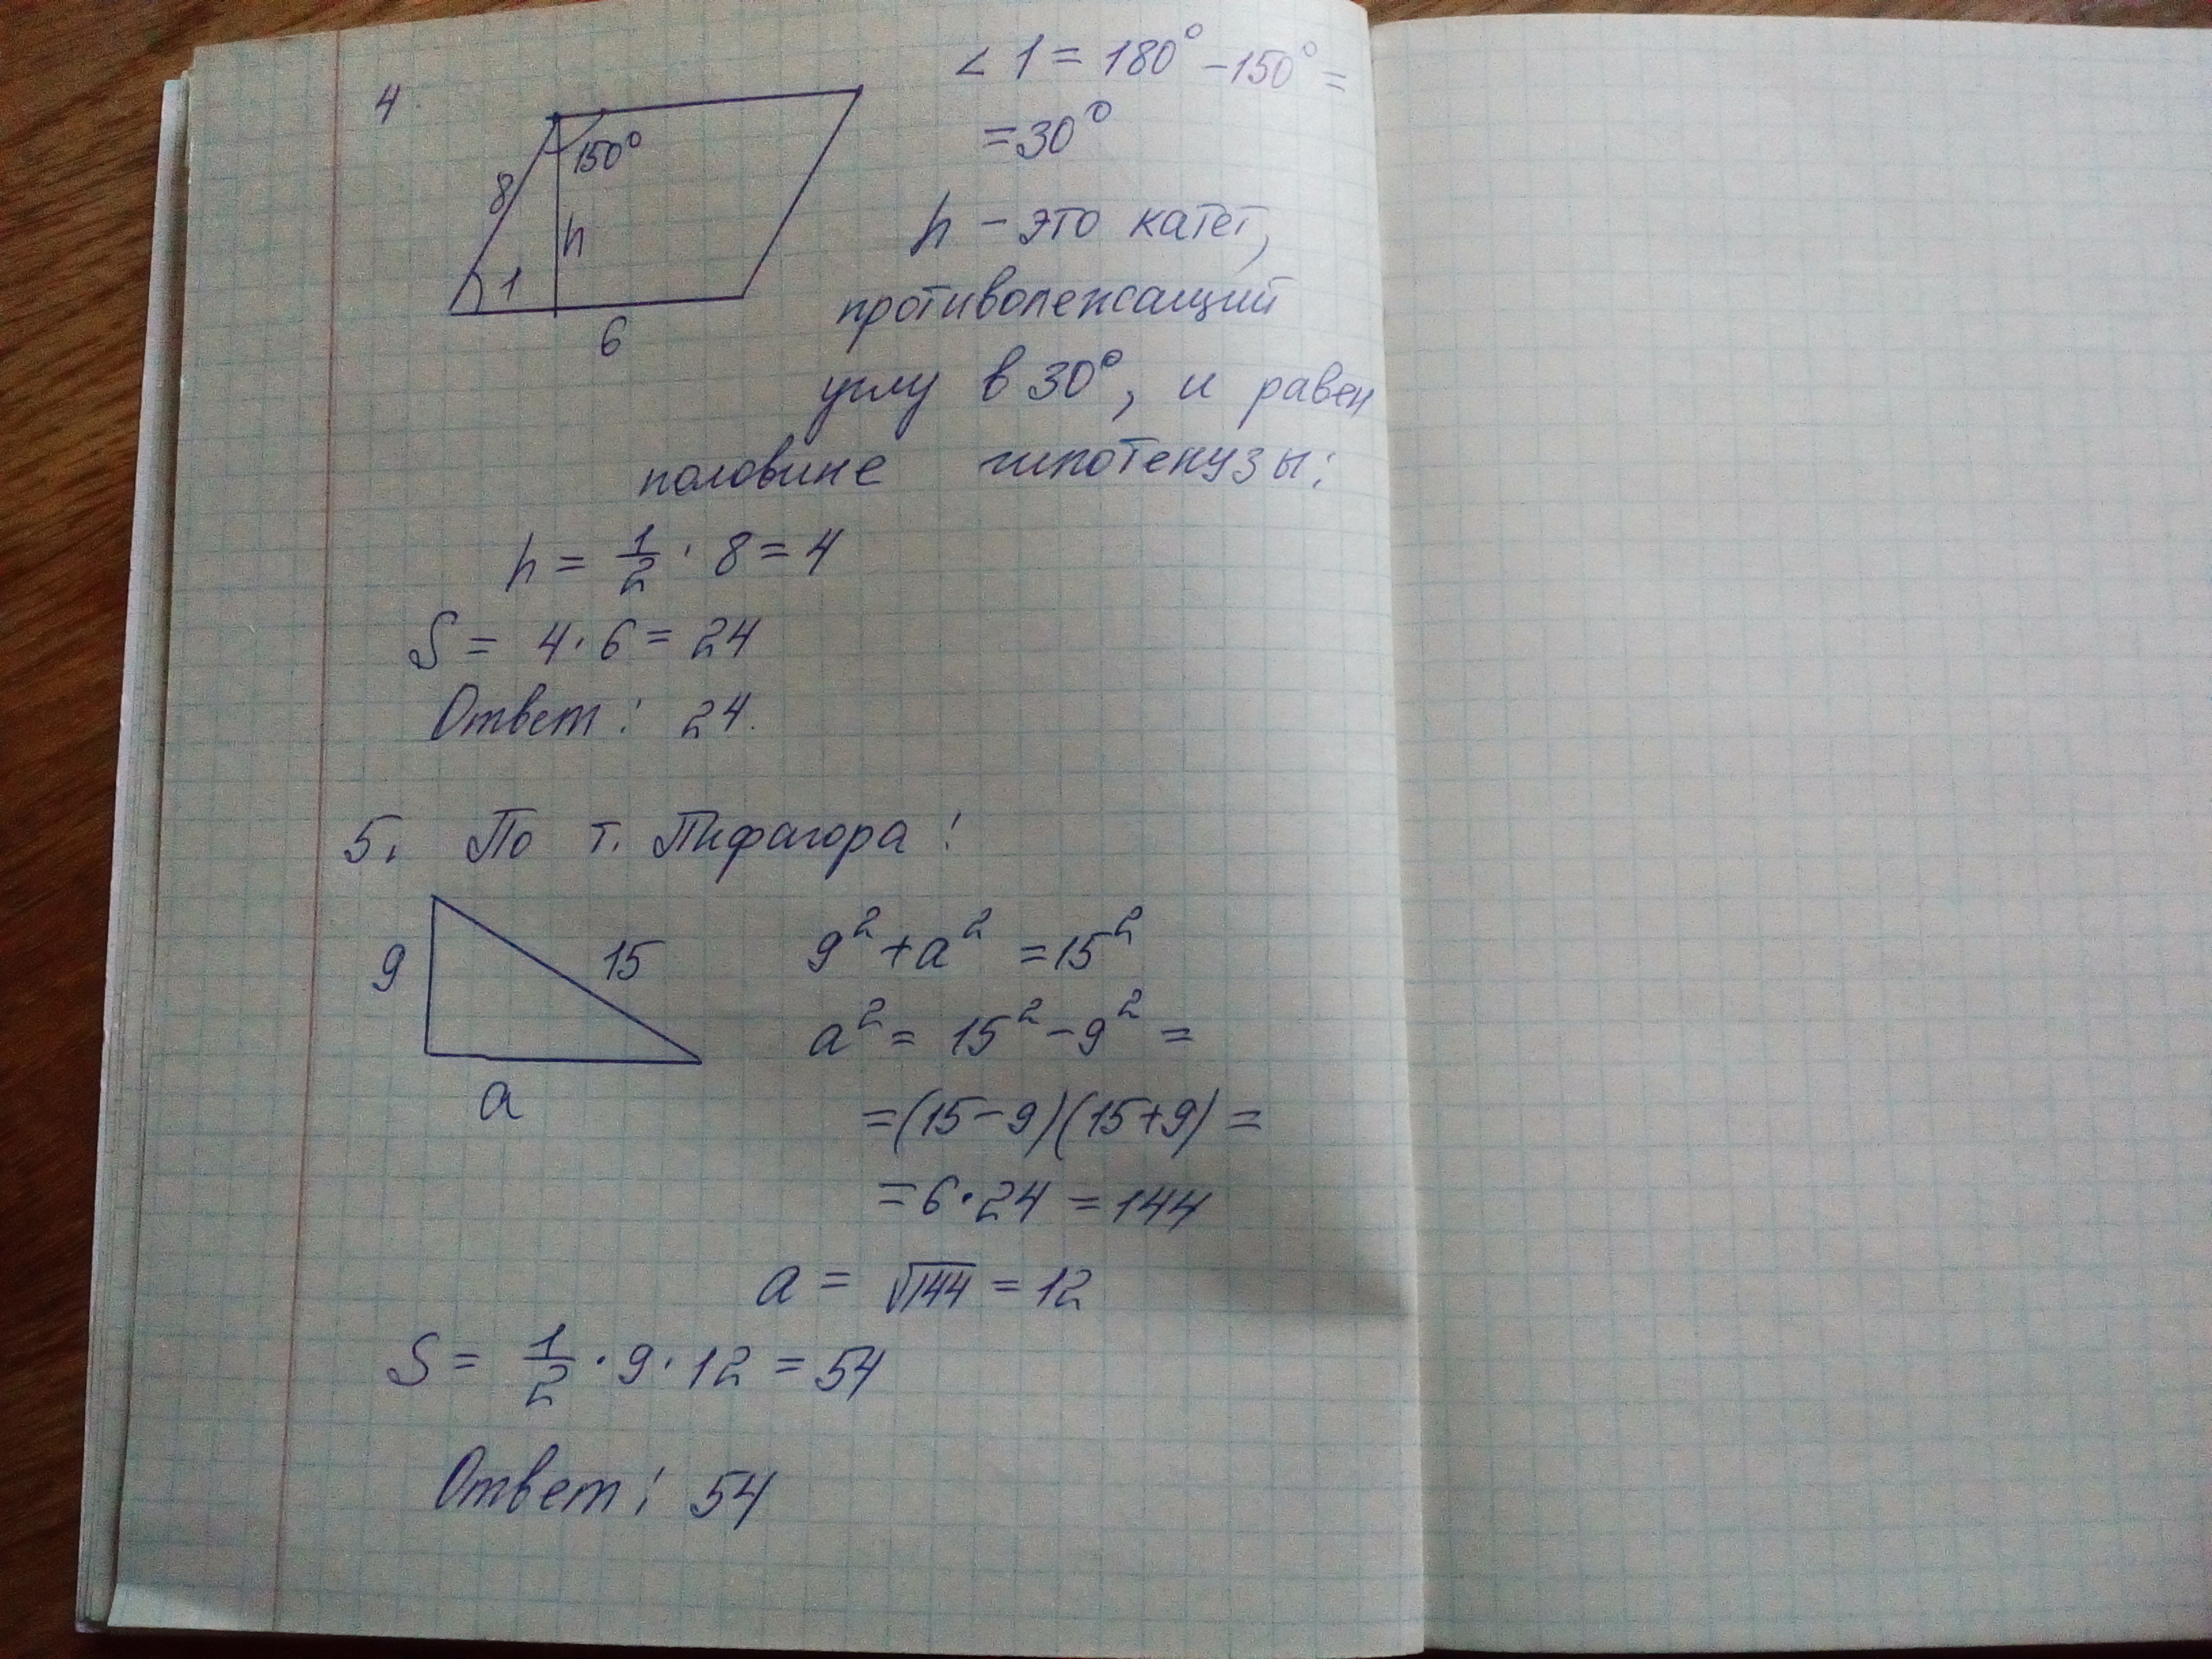 4.
∠1 = 180° - 150° =
= 30°
150°
8
h
1
6
h - это катет,
противолежащий
углу в 30°, и равен
половине гипотенузы:
h = 1/2 · 8 = 4
S = 4 · 6 = 24
Ответ: 24.
5. По т. Пифагора:
9
15
a
9² + a² = 15²
a² = 15² - 9² =
= (15 - 9)(15 + 9) =
= 6 · 24 = 144
a = √144 = 12
S = 1/2 · 9 · 12 = 54
Ответ: 54